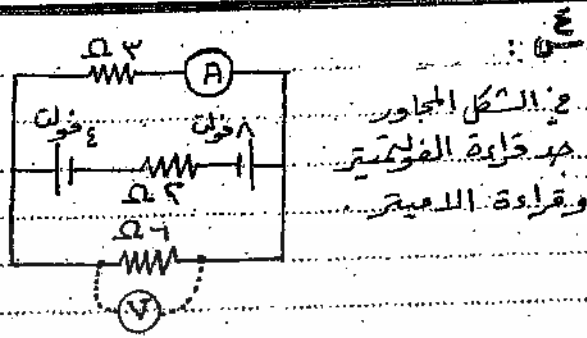 س٤ :
في الشكل المجاور
جد قراءة الفولتميتر
وقراءة الاميتر
٣ Ω
A
٤ فولت
٨ فولت
٢ Ω
٦ Ω
V